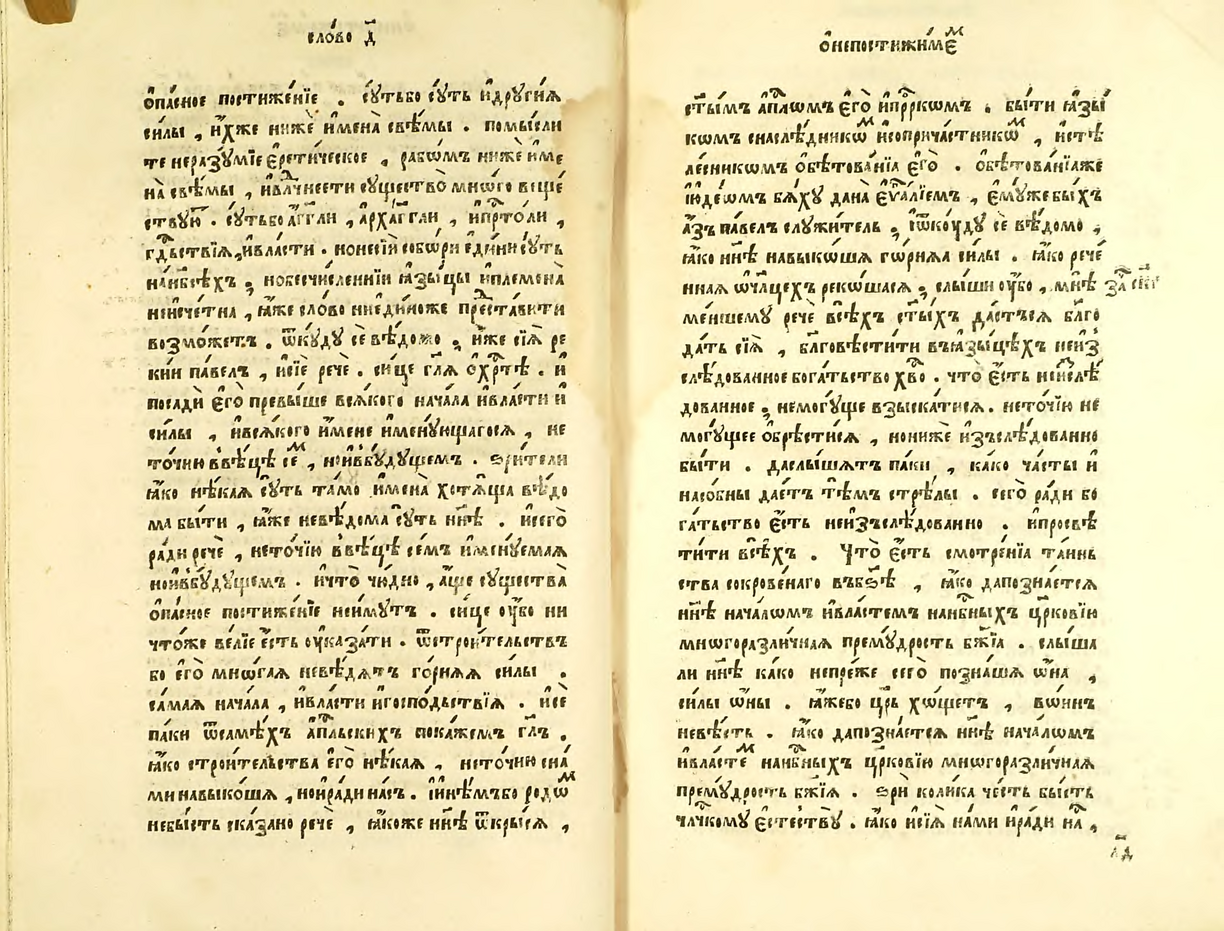 сло́во д҃
ѻ҆па́сное постиже́нїе . сꙋ́тьбо сꙋ́ть и҆дрꙋгі́ѧ
си́лы , и҆́хже нижѐ и҆мена̀ свѣ́мы . помы́сли
те неразꙋ́мїе є҆рети́ческое , рабѡ́мъ нижѐ и҆ме
на̀ свѣ́мы , и҆влⷣчнести сꙋщество̀ мно́го вѣще́
ствꙋю̀ . сꙋ́тьбо а҆́гг҃ли , а҆рха́гг҃ли , и҆прⷭ҇то́ли ,
гдⷭ҇ьствїѧ , и҆вла́сти . ноне́сїи собо́ри є҆ди́ни сꙋ́ть
нанб҃сѣ́хъ , нобесчи́сленнїи ꙗ҆зы́цы и҆племена̀
неисче́тна , ꙗ҆́же сло́во ниє҆ди́ноже преⷣста́вити
возмо́жетъ . ѿкꙋ́дꙋ сѐ вѣ́домо , и҆́же сїѧ̀ ре
кі́и па́велъ , и҆сїѐ речѐ . си́це гл҃ѧ ѻ҆хрⷭ҇тѣ̀ . и҆
посадѝ є҆го̀ превы́ше всѧ́кого нача́ла и҆вла́сти и҆
си́лы , и҆всѧ́кого и҆́мене и҆менꙋ́ющагосѧ , не
то́чию ввѣ́цѣ се́ⷨ , нои҆вбꙋ́дꙋщемъ . ѕри́тели
ꙗ҆́ко нѣ́каѧ сꙋ́ть та́мо и҆мена̀ хотѧ́ща вѣ́до
ма бы́ти , ꙗ҆́же невѣ́дома сꙋ́ть нн҃ѣ . и҆сего̀
ра́ди речѐ , нето́чїю ввѣ́цѣ се́мъ и҆менꙋ́емаѧ
нои҆вбꙋ́дꙋщемъ . и҆что̀ чю́дно , а҆́ще сꙋщества̀
ѻ҆па́сное постиже́нїе неи́мꙋтъ . си́це ᲂу҆́бо ни
что́же ве́лїе є҆́сть ᲂу҆каза́ти . ѿстрои́тельствъ
бо є҆го̀ мнѡ́гаѧ невѣ́дѧтъ го́рнѧѧ си́лы .
са́маѧ нача́ла , и҆вла́сти и҆госпо́дьствїѧ . и҆се́
па́ки ѿсамѣ́хъ а҆пⷭ҇льскихъ пока́жемъ гл҃ъ .
ꙗ҆́ко строи́тельства є҆го̀ нѣ́каѧ , нето́чїю сна́
ми навыко́шѧ , нои҆ра́ди на́съ . и҆и́нѣмъбо родѡⷨ
небы́сть ска́зано речѐ , ꙗ҆́коже нн҃ѣ ѿкры́сѧ ,
ѻ҆непостижи́мѣⷨ
ст҃ы́мъ а҆пⷭ҇лѡмъ є҆го̀ и҆прⷪ҇ркѡмъ . бы́ти ꙗ҆зы́
кѡмъ снаслѣ́дникѡⷨ и҆соприча́стникѡⷨ , и҆стѣ
ле́сникѡмъ ѻ҆бѣтова́нїѧ є҆го̀ . ѻ҆бѣтова́нїѧже
і҆ꙋде́ѡмъ бѧ́хꙋ дана̀ є҆ѵⷢ҇а́лїемъ , є҆мꙋ́же бы́хъ
а҆́зъ па́велъ слꙋжи́тель , и҆ѿкꙋ́дꙋ сѐ вѣ́домо ,
ꙗ҆́ко нн҃ѣ навыко́шѧ гѡ́рнѧѧ си́лы . ꙗ҆́ко рече́
ннаѧ ѡ҆чл҃цехъ реко́шасѧ , слы́ши ᲂу҆́бо , мнѣ̀ за҃
ме́ншемꙋ речѐ всѣ́хъ ст҃ы́хъ да́стьсѧ бл҃го
да́ть сїѧ̀ , бл҃говѣсти́ти въꙗ҆зы́цѣхъ неи́з
слѣ́дованное бога́тьство хрⷭ҇тво . что̀ є҆́сть неи́слѣ
дованное , немогꙋ́ще взыска́тисѧ . нето́чїю не
могꙋ́щее ѻ҆брѣ́стисѧ , нонижѐ и҆зъслѣ́дованно
бы́ти . даслы́шатъ па́ки , ка́ко ча́сты и҆
насо́бны дае́тъ тѣ́мъ стрѣ́лы . сего̀ ра́ди бо
га́тьство є҆́сть неи́зъслѣ́дованно . и҆просвѣ
ти́ти всѣ́хъ . Что̀ є҆́сть смотре́нїѧ та́инь
ства сокрове́наго въбз҃ѣ , ꙗ҆́ко дапозна́етсѧ
нн҃ѣ нача́лѡмъ и҆власте́мъ нанбⷭ҇ныхъ цр҃ковїю
мнѡгоразли́чнаѧ премꙋ́дрость бж҃їа . слы́ша
ли нн҃ѣ ка́ко непре́же сего̀ позна́шѧ ѡ҆на ,
си́лы ѡ҆́ны . ꙗ҆́жебо цр҃ь хо́щетъ , во́инъ
невѣ́сть . ꙗ҆́ко дапозна́етсѧ нн҃ѣ нача́лѡмъ
и҆власте́ⷨ нанбⷭ҇ныхъ цр҃ковїю мнѡгоразли́чнаѧ
премꙋ́дрость бж҃їѧ . ѕрѝ коли́ка че́сть бы́сть
чл҃чкомꙋ є҆стествꙋ̀ . ꙗ҆́ко и҆сїѧ̀ на́ми и҆ра́ди на́ ,